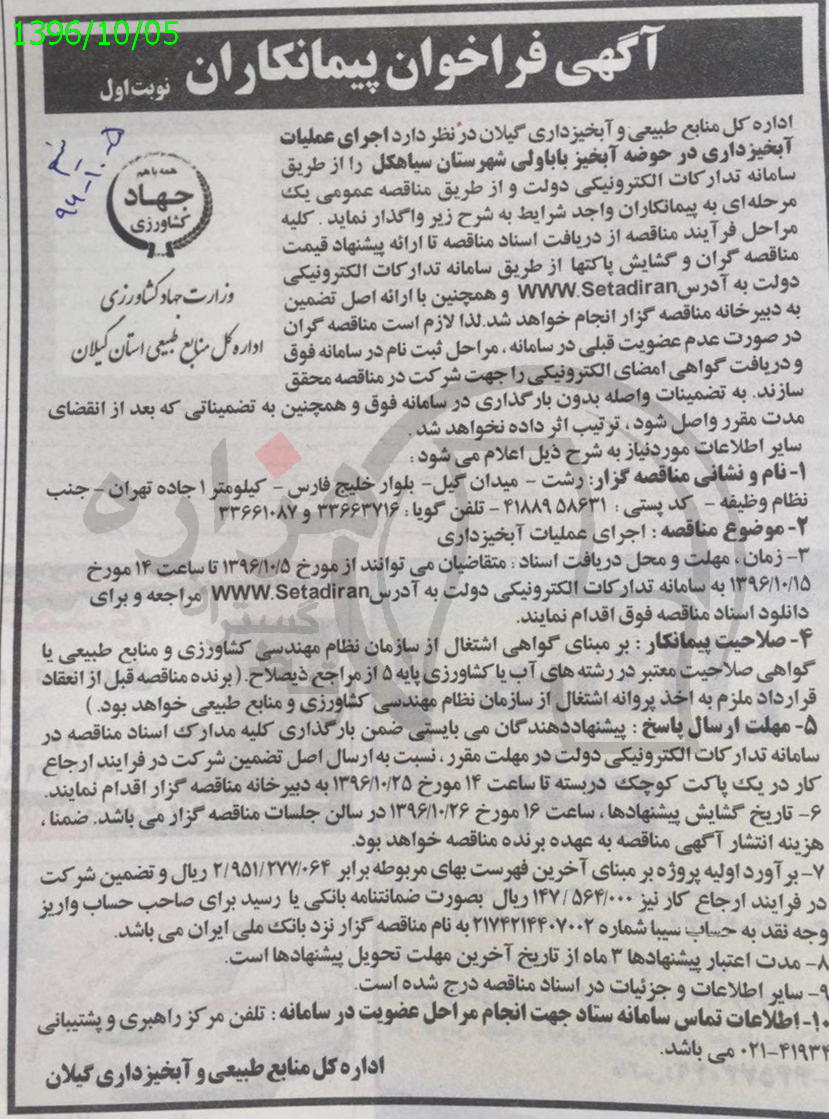 1396/10/05
آگهی فراخوان پیمانکاران نوبت اول
اداره کل منابع طبیعی و آبخیزداری گیلان در نظر دارد اجرای عملیات
آبخیزداری در حوضه آبخیز باباولی شهرستان سیاهکل را از طریق
سامانه تدارکات الکترونیکی دولت و از طریق مناقصه عمومی یک
مرحله‌ای به پیمانکاران واجد شرایط به شرح زیر واگذار نماید. کلیه
مراحل فرآیند مناقصه از دریافت اسناد مناقصه تا ارائه پیشنهاد قیمت
مناقصه گران و گشایش پاکتها از طریق سامانه تدارکات الکترونیکی
دولت به آدرس WWW.Setadiran و همچنین با ارائه اصل تضمین
به دبیرخانه مناقصه گزار انجام خواهد شد. لذا لازم است مناقصه گران
در صورت عدم عضویت قبلی در سامانه، مراحل ثبت نام در سامانه فوق
و دریافت گواهی امضای الکترونیکی را جهت شرکت در مناقصه محقق
سازند. به تضمینات واصله بدون بارگذاری در سامانه فوق و همچنین به تضمیناتی که بعد از انقضای
مدت مقرر واصل شود، ترتیب اثر داده نخواهد شد.
همه با هم
جهاد
کشاورزی
وزارت جهاد کشاورزی
اداره کل منابع طبیعی استان گیلان
سایر اطلاعات موردنیاز به شرح ذیل اعلام می شود:
۱- نام و نشانی مناقصه گزار: رشت - میدان گیل - بلوار خلیج فارس - کیلومتر ۱ جاده تهران - جنب
نظام وظیفه - کد پستی: ۵۸۶۳۱ ۴۱۸۸۹ - تلفن گویا: ۳۳۶۶۳۷۱۶ و ۳۳۶۶۱۰۸۷
۲- موضوع مناقصه: اجرای عملیات آبخیزداری
۳- زمان، مهلت و محل دریافت اسناد: متقاضیان می توانند از مورخ ۱۳۹۶/۱۰/۵ تا ساعت ۱۴ مورخ
۱۳۹۶/۱۰/۱۵ به سامانه تدارکات الکترونیکی دولت به آدرس WWW.Setadiran مراجعه و برای
دانلود اسناد مناقصه فوق اقدام نمایند.
۴- صلاحیت پیمانکار: بر مبنای گواهی اشتغال از سازمان نظام مهندسی کشاورزی و منابع طبیعی یا
گواهی صلاحیت معتبر در رشته های آب یا کشاورزی پایه ۵ از مراجع ذیصلاح. (برنده مناقصه قبل از انعقاد
قرارداد ملزم به اخذ پروانه اشتغال از سازمان نظام مهندسی کشاورزی و منابع طبیعی خواهد بود.)
۵- مهلت ارسال پاسخ: پیشنهاددهندگان می بایستی ضمن بارگذاری کلیه مدارک اسناد مناقصه در
سامانه تدارکات الکترونیکی دولت در مهلت مقرر، نسبت به ارسال اصل تضمین شرکت در فرایند ارجاع
کار در یک پاکت کوچک دربسته تا ساعت ۱۴ مورخ ۱۳۹۶/۱۰/۲۵ به دبیرخانه مناقصه گزار اقدام نمایند.
۶- تاریخ گشایش پیشنهادها، ساعت ۱۶ مورخ ۱۳۹۶/۱۰/۲۶ در سالن جلسات مناقصه گزار می باشد. ضمنا،
هزینه انتشار آگهی مناقصه به عهده برنده مناقصه خواهد بود.
۷- برآورد اولیه پروژه بر مبنای آخرین فهرست بهای مربوطه برابر ۲/۹۵۱/۲۷۷/۰۶۴ ریال و تضمین شرکت
در فرایند ارجاع کار نیز ۱۴۷/۵۶۴/۰۰۰ ریال بصورت ضمانتنامه بانکی یا رسید برای صاحب حساب واریز
وجه نقد به حساب سیبا شماره ۲۱۷۴۲۱۴۴۰۷۰۰۲ به نام مناقصه گزار نزد بانک ملی ایران می باشد.
۸- مدت اعتبار پیشنهادها ۳ ماه از تاریخ آخرین مهلت تحویل پیشنهادها است.
۹- سایر اطلاعات و جزئیات در اسناد مناقصه درج شده است.
۱۰- اطلاعات تماس سامانه ستاد جهت انجام مراحل عضویت در سامانه: تلفن مرکز راهبری و پشتیبانی
۰۲۱-۴۱۹۳۴ می باشد.
اداره کل منابع طبیعی و آبخیزداری گیلان